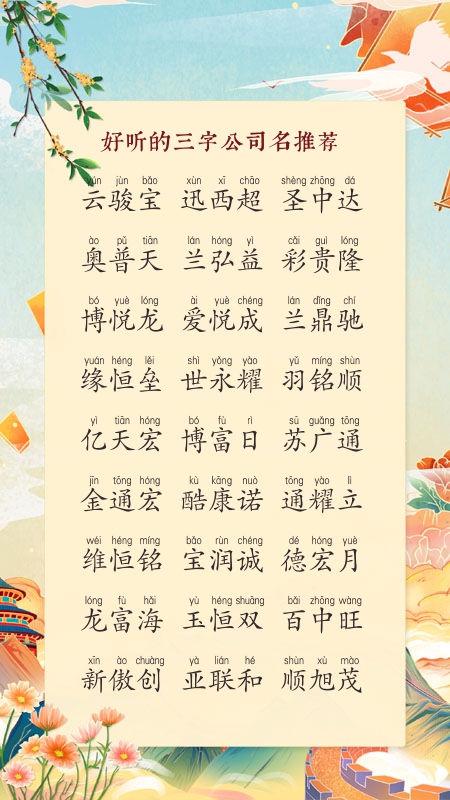 好听的三字公司名推荐
yún jùn bǎo xùn xī chāo shèng zhōng dá
云骏宝 迅西超 圣中达
ào pǔ tiān lán hóng yì cǎi guì lóng
奥普天 兰弘益 彩贵隆
bó yuè lóng ài yuè chéng lán dǐng chí
博悦龙 爱悦成 兰鼎驰
yuán héng lěi shì yǒng yào yǔ míng shùn
缘恒垒 世永耀 羽铭顺
yì tiān hóng bó fù rì sū guǎng tōng
亿天宏 博富日 苏广通
jīn tōng hóng kù kāng nuò tōng yào lì
金通宏 酷康诺 通耀立
wéi héng míng bǎo rùn chéng dé hóng yuè
维恒铭 宝润诚 德宏月
lóng fù hǎi yù héng shuāng bǎi zhōng wàng
龙富海 玉恒双 百中旺
xīn ào chuàng yà lián hé shùn xù mào
新傲创 亚联和 顺旭茂